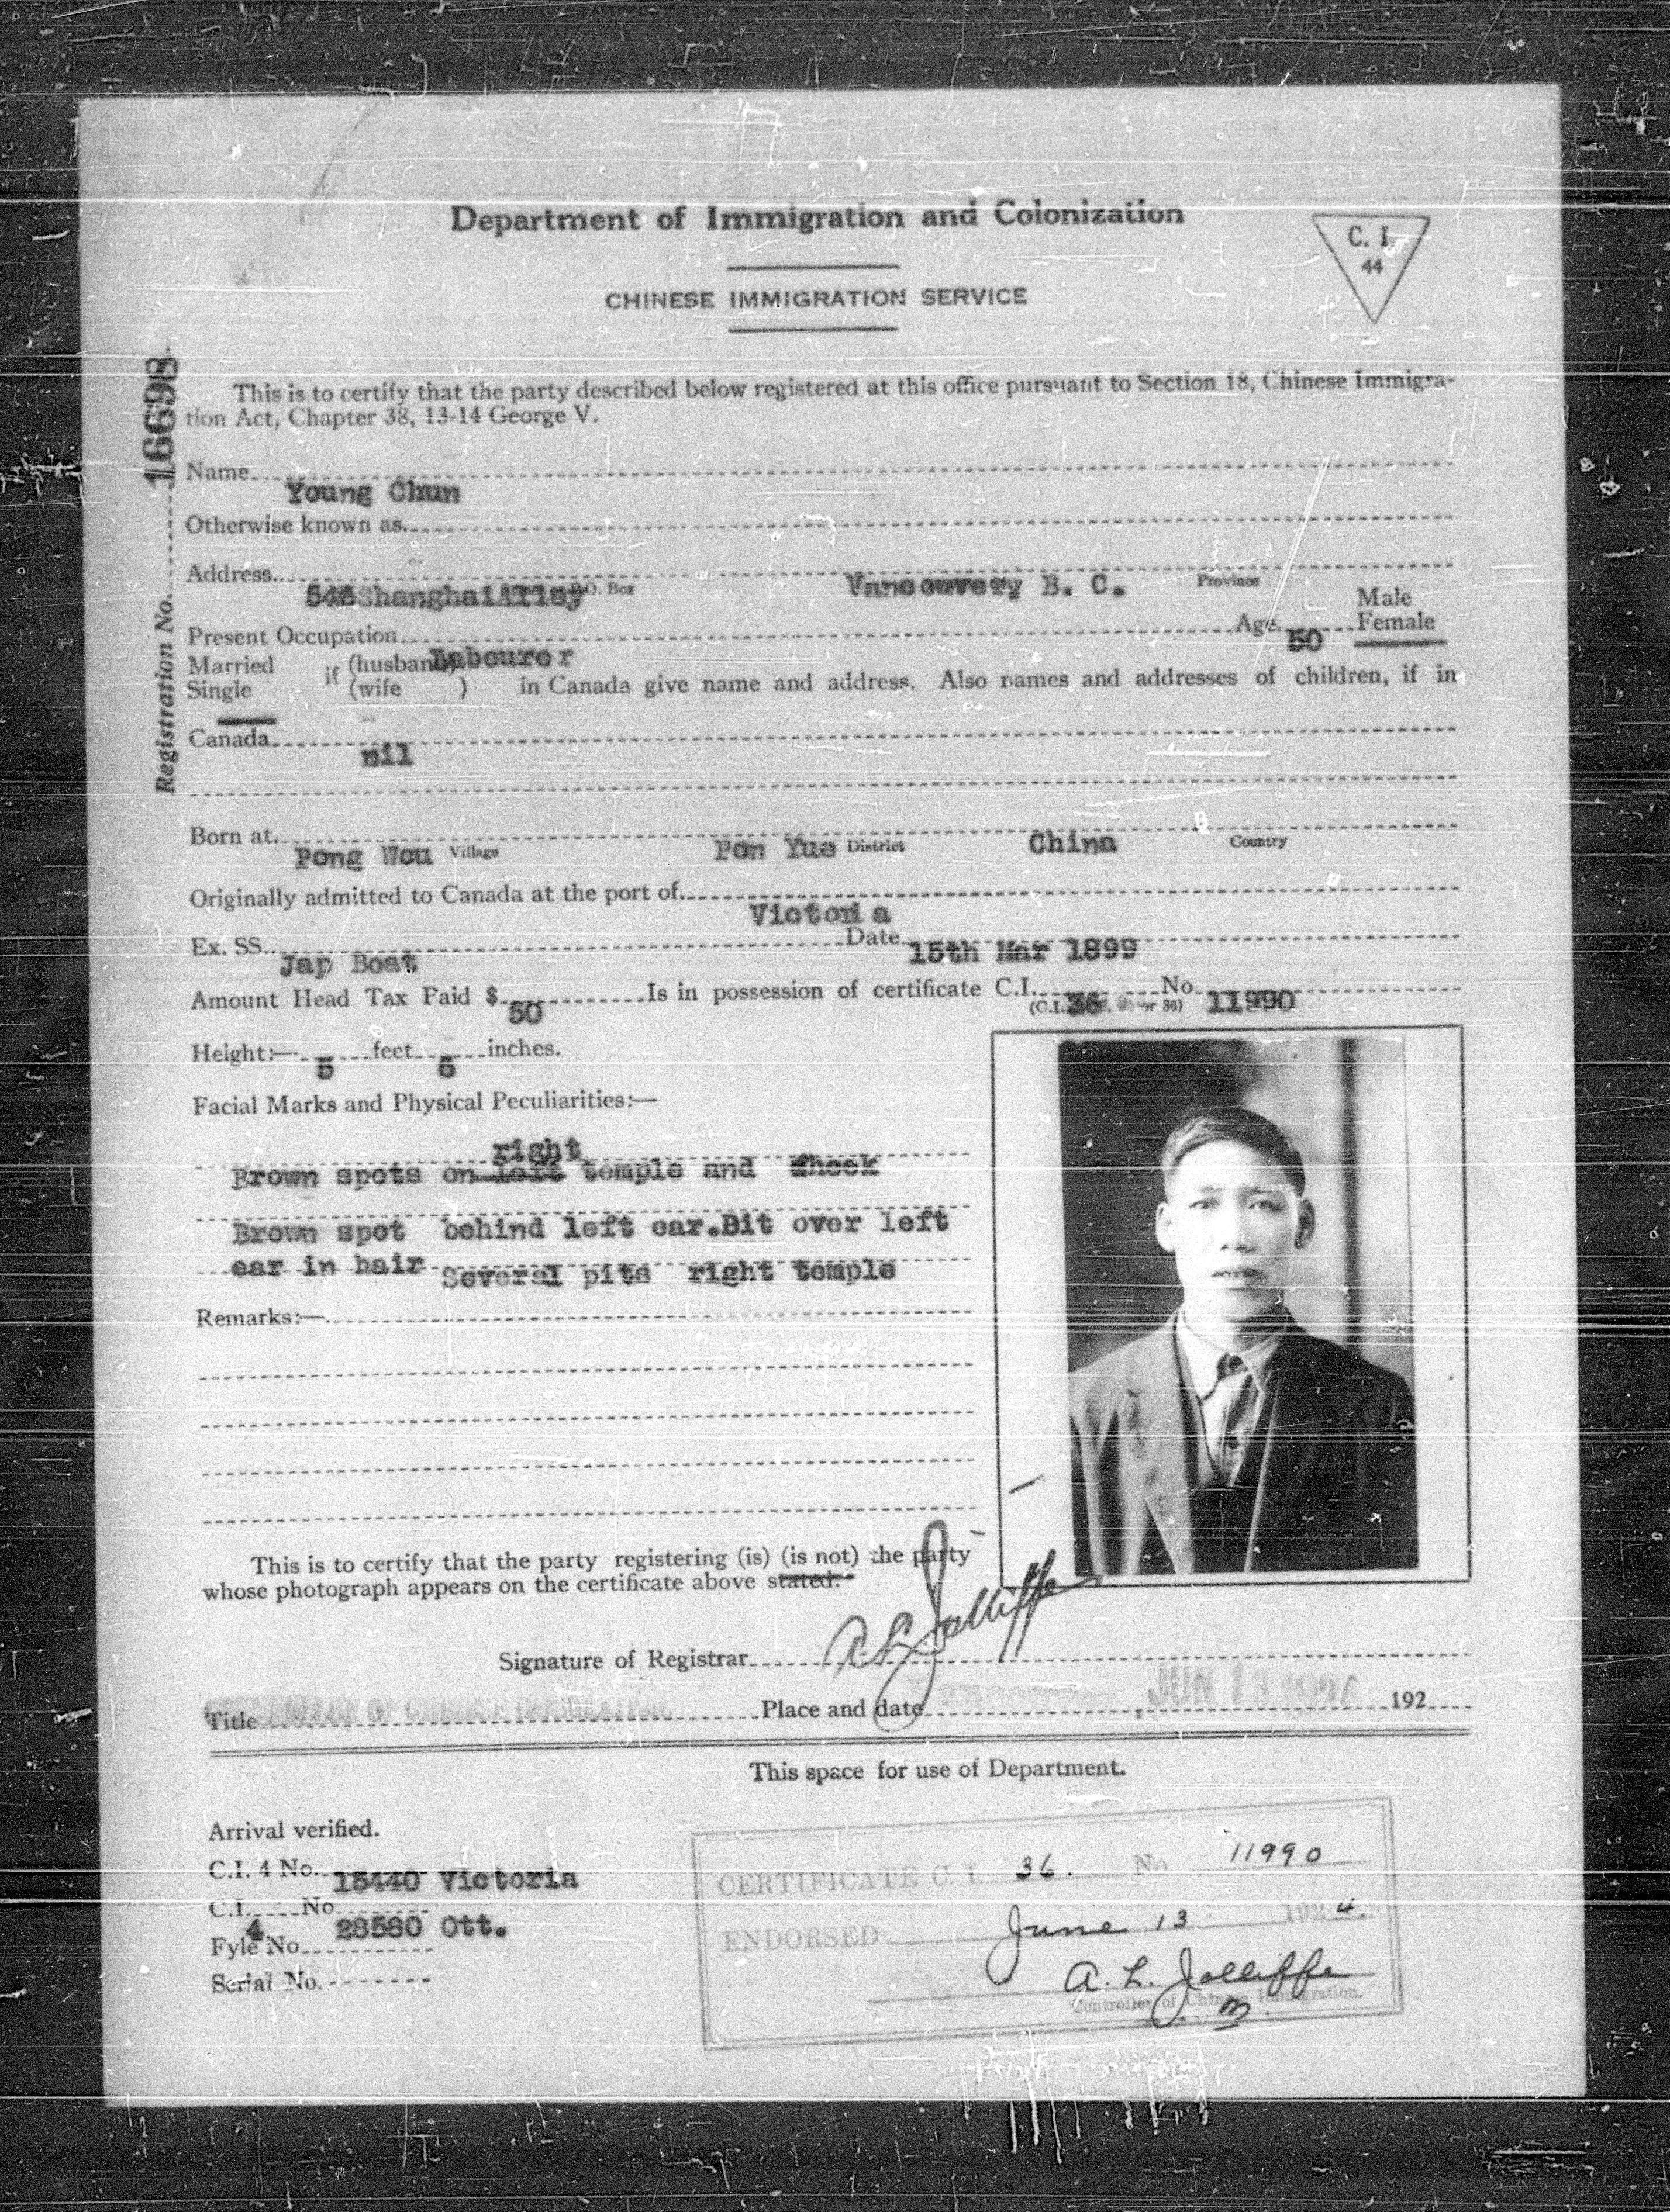 Department of Immigration and Colonization
C. I.
44
CHINESE IMMIGRATION SERVICE
Registration No. 16698
This is to certify that the party described below registered at this office pursuant to Section 18, Chinese Immigra-
tion Act, Chapter 38, 13-14 George V.
Name
Young Chun
Otherwise known as
Address
Shanghai P.O. Box Vancouver, B. C. Province
Male
Present Occupation Age 50 Female
Labourer
Married if (husband)
Single (wife ) in Canada give name and address. Also names and addresses of children, if in
Canada
nil
Born at
Pong Wou Village Pon Yue District China Country
Originally admitted to Canada at the port of
Victoria
Ex. SS. Date
Jap Boat 15th Mar 1899
Amount Head Tax Paid $ 50 Is in possession of certificate C.I. 36 No 11990
(C.I. or 36)
Height:— 5 feet inches.
Facial Marks and Physical Peculiarities:—
right
Brown spots on left temple and cheek
Brown spot behind left ear. over left
ear in hair Several pits right temple
Remarks:—
This is to certify that the party registering (is) (is not) the party
whose photograph appears on the certificate above stated.
Signature of Registrar A. L. Jolliffe
Title Place and date Vancouver, JUN 13 1924 192
This space for use of Department.
Arrival verified.
C.I. 4 No. 15440 Victoria
C.I. 4 No. 28580 Ott.
Fyle No.
Serial No.
CERTIFICATE C. I. 36. No. 11990
ENDORSED June 13 1924.
A. L. Jolliffe
Controller of Chinese Immigration.